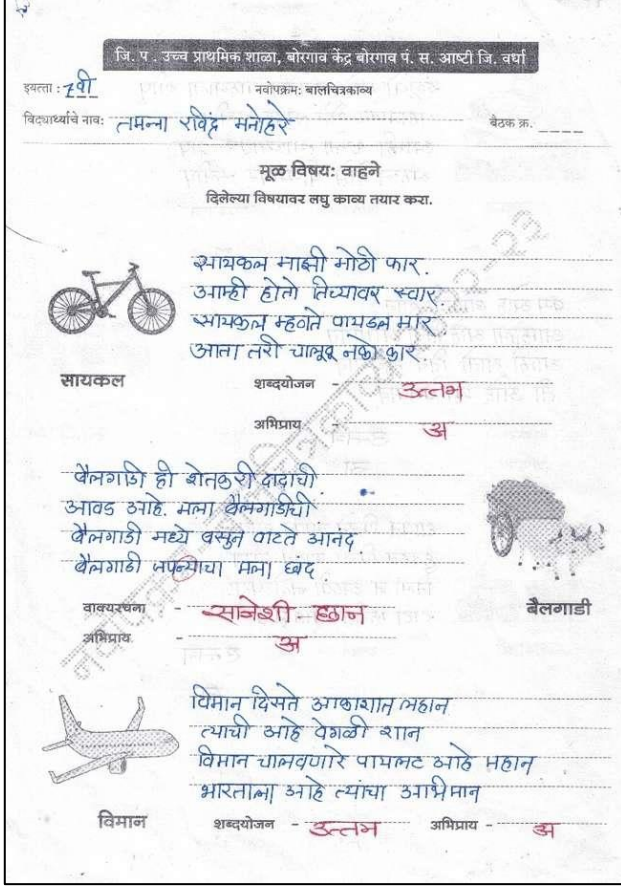 जि. प. उच्च प्राथमिक शाळा, बोरगाव केंद्र बोरगाव पं. स. आष्टी जि. वर्धा
इयत्ता : 7वी
नवोपक्रम: बालचित्रकाव्य
विद्यार्थ्याचे नाव: तमन्ना रविंद्र मनोहरे बैठक क्र.
मूळ विषय: वाहने
दिलेल्या विषयावर लघु काव्य तयार करा.
सायकल माझी मोठी फार.
आम्ही होतो तिच्यावर स्वार
सायकल म्हणते पायडल मार
आता तरी चालू नको कार
सायकल
शब्दयोजन - उत्तम
अभिप्राय - अ
बैलगाडी ही शेतकरी दादाची
आवड आहे. मला बैलगाडीची
बैलगाडी मध्ये बसुन वाटते आनंद
बैलगाडी जपन्याचा मला छंद
वाक्यरचना - छान
बैलगाडी
अभिप्राय - अ
विमान दिसते आकाशात लहान
त्याची आहे वेगळी शान
विमान चालवणारे पायलट आहे महान
भारताला आहे त्यांचा अभिमान
विमान
शब्दयोजन - उत्तम अभिप्राय - अ